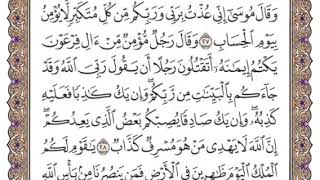 وَقَالَ مُوسَىٰٓ إِنِّي عُذْتُ بِرَبِّي وَرَبِّكُم مِّن كُلِّ مُتَكَبِّرٍ لَّا يُؤْمِنُ
بِيَوْمِ ٱلْحِسَابِ ٢٧ وَقَالَ رَجُلٌ مُّؤْمِنٌ مِّنْ ءَالِ فِرْعَوْنَ
يَكْتُمُ إِيمَٰنَهُۥٓ أَتَقْتُلُونَ رَجُلًا أَن يَقُولَ رَبِّيَ ٱللَّهُ وَقَدْ
جَآءَكُم بِٱلْبَيِّنَٰتِ مِن رَّبِّكُمْ ۖ وَإِن يَكُ كَٰذِبًا فَعَلَيْهِ
كَذِبُهُۥ ۖ وَإِن يَكُ صَادِقًا يُصِبْكُم بَعْضُ ٱلَّذِي يَعِدُكُمْ ۖ
إِنَّ ٱللَّهَ لَا يَهْدِي مَنْ هُوَ مُسْرِفٌ كَذَّابٌ ٢٨ يَٰقَوْمِ لَكُمُ
ٱلْمُلْكُ ٱلْيَوْمَ ظَٰهِرِينَ فِي ٱلْأَرْضِ فَمَن يَنصُرُنَا مِنۢ بَأْسِ ٱللَّهِ